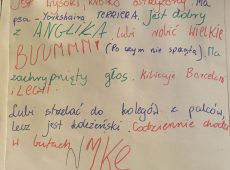 jest wysoki, krótko ostrzyżony. Ma
psa - Yorkshaira TERRIERA, jest dobry
z ANGLIKA. Lubi robić WIELKIE
BUUMMM! (Po czym nie sprząta). Ma
zachrypnięty głos. Kibicuje Barcelonie
i LECHII.
Lubi strzelać do kolegów z palców,
lecz jest koleżeński. Codziennie chodzi
w butach NIKE